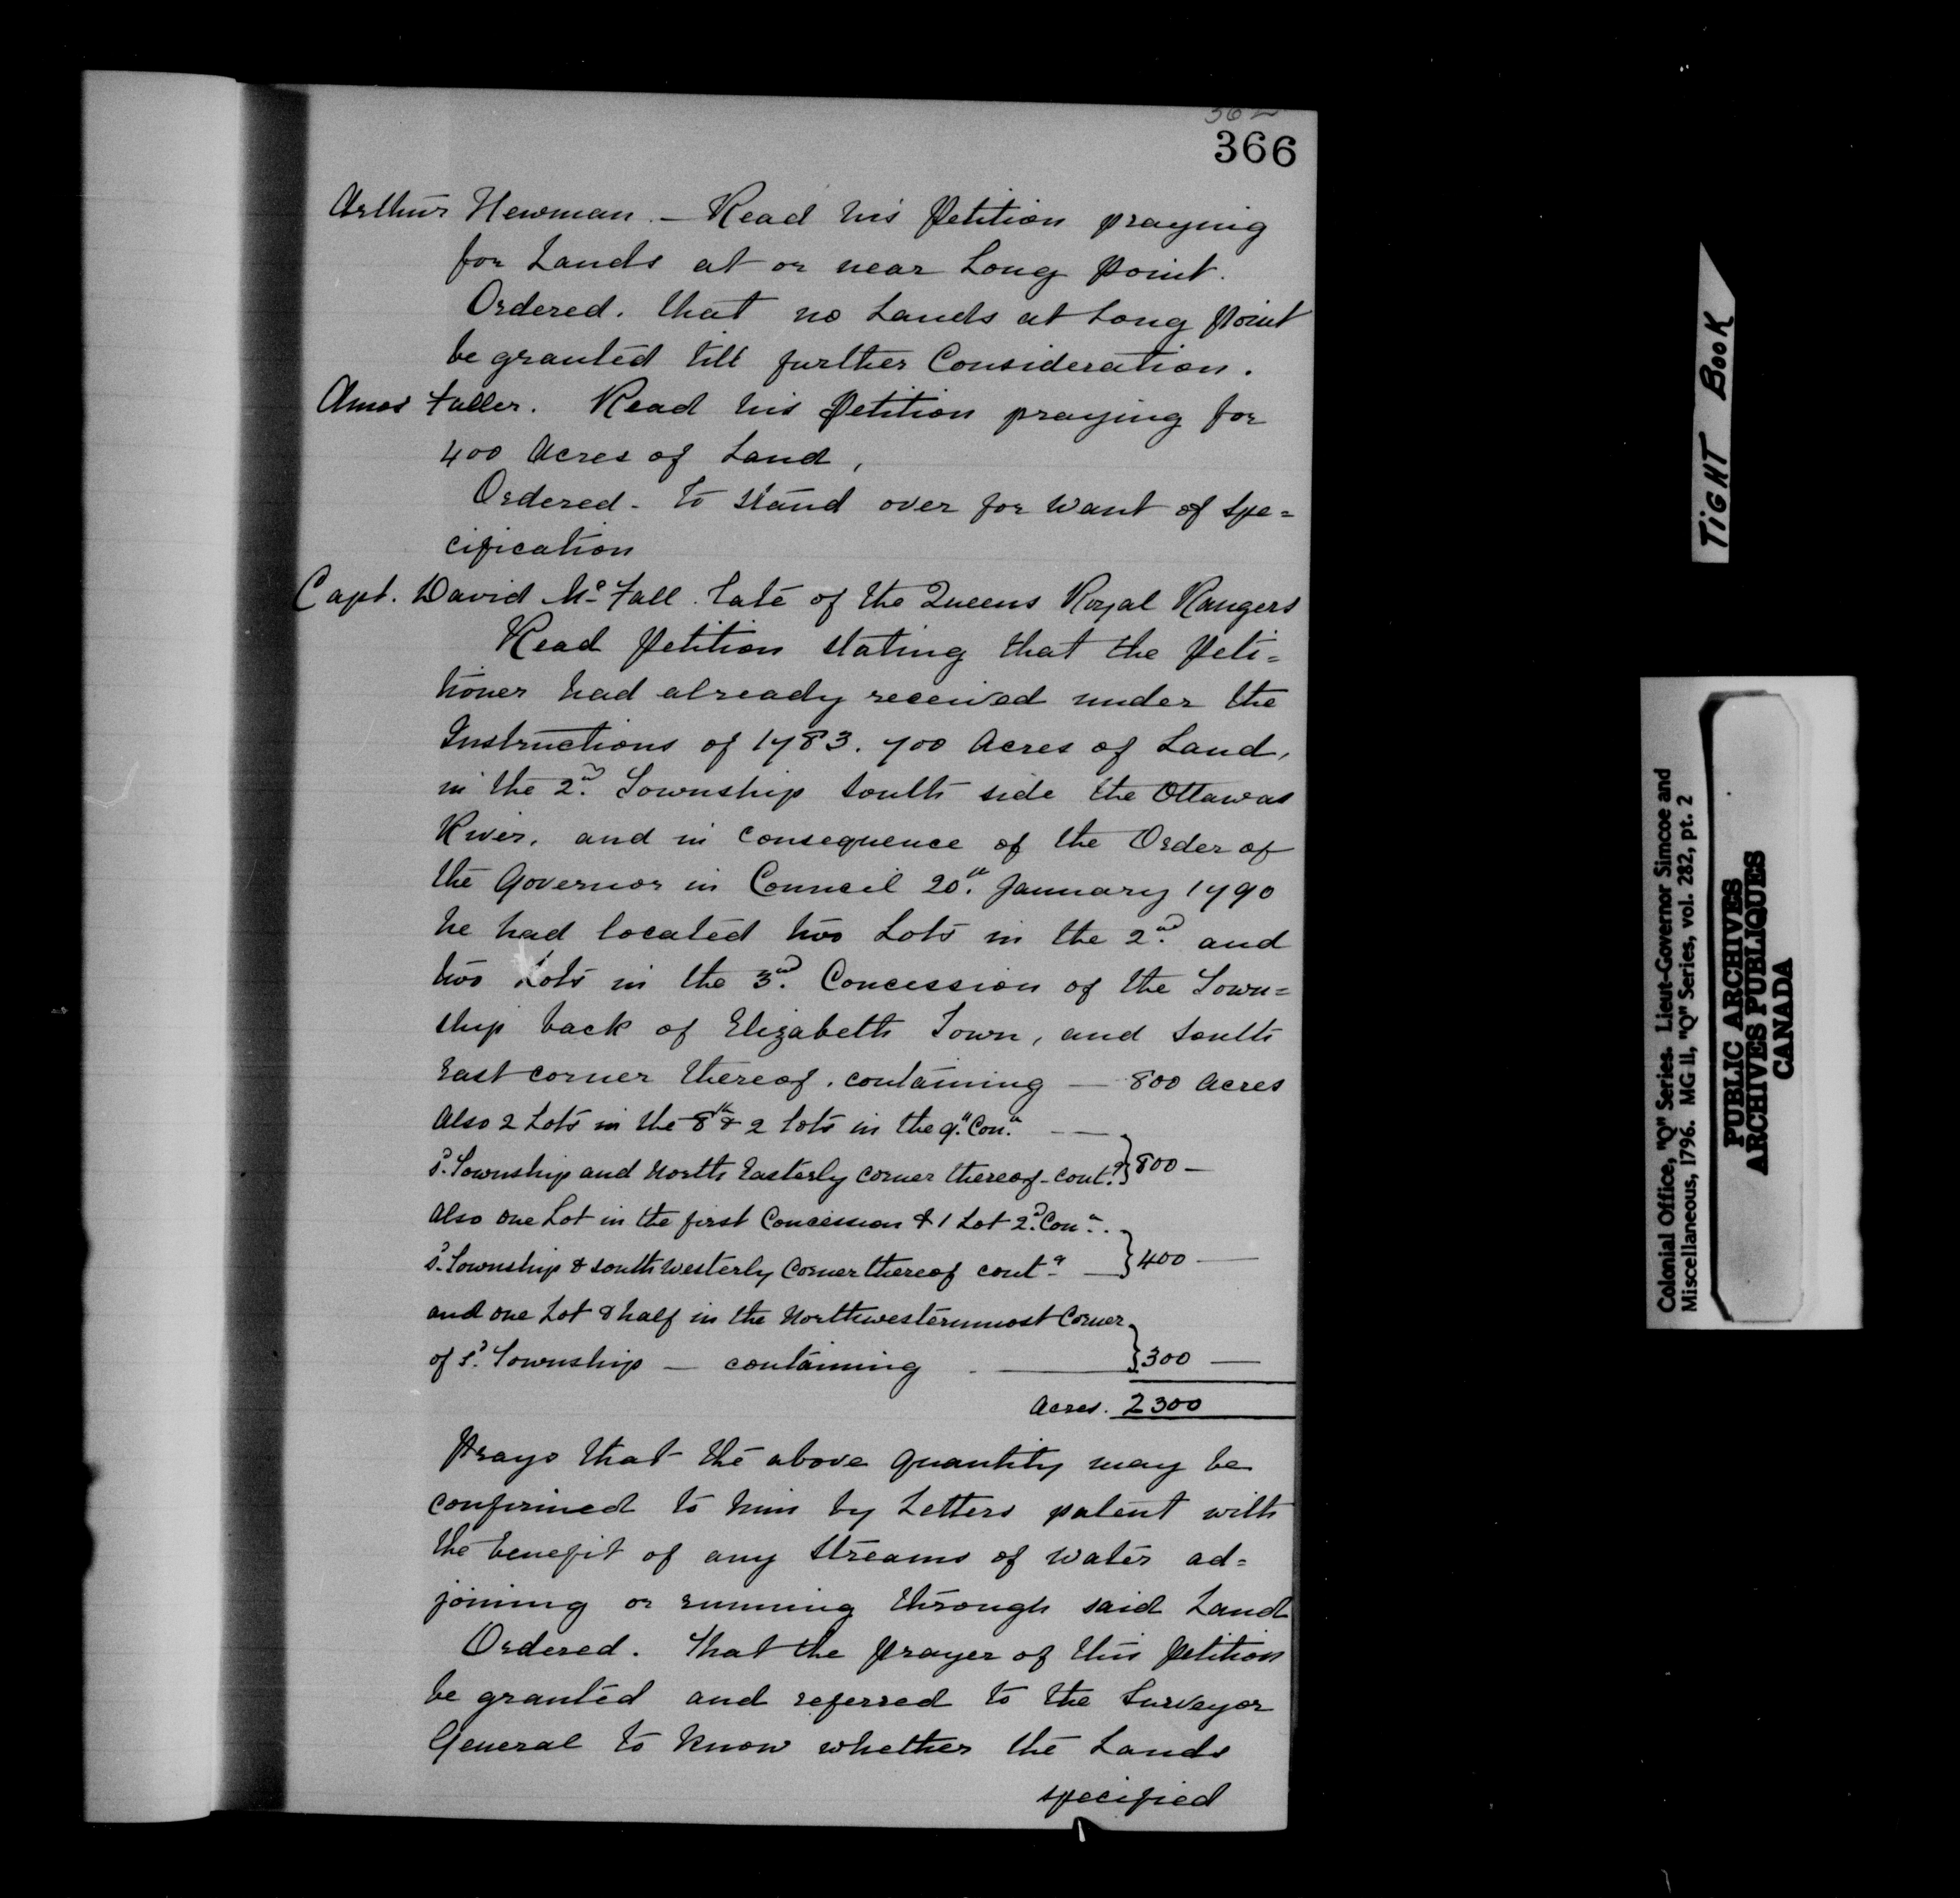 362
366
Arthur Newman. — Read his Petition praying
for Lands at or near Long Point.
Ordered. that no Lands at Long Point
be granted till further Consideration.
Amos Fuller. Read his Petition praying for
400 Acres of Land,
Ordered - to stand over for want of Spe=
cification
Capt. David Mc.Fall. late of the Queens Royal Rangers
Read Petition stating that the Peti=
tioner had already received under the
Instructions of 1783. 700 Acres of Land,
in the 2nd. Township South side the Ottawas
River, and in consequence of the Order of
the Governor in Council 20th. January 1790
he had located two Lots in the 2nd. and
two Lots in the 3rd. Concession of the Town=
ship back of Elizabeth Town, and South
East corner thereof. containing — 800 Acres
Also 2 Lots in the 8th & 2 lots in the 9th. Conn. —
sd. Township and North Easterly corner thereof - contg. } 800 —
Also one Lot in the first Concession & 1 Lot 2d. Conn. .
sd. Township & South Westerly Corner thereof contg. — } 400 —
and one Lot & half in the Northwesternmost Corner
of sd. Township — containing — } 300 —
Acres. 2300
Prays that the above quantity may be
confirmed to him by Letters patent with
the benefit of any Streams of Water ad=
joining or running through said Land
Ordered. That the prayer of this Petition
be granted and referred to the Surveyor
General to know whether the Lands
specified
TIGHT BOOK
Colonial Office, "Q" Series. Lieut-Governor Simcoe and
Miscellaneous, 1796. MG 11, "Q" Series, vol. 282, pt. 2
PUBLIC ARCHIVES
ARCHIVES PUBLIQUES
CANADA